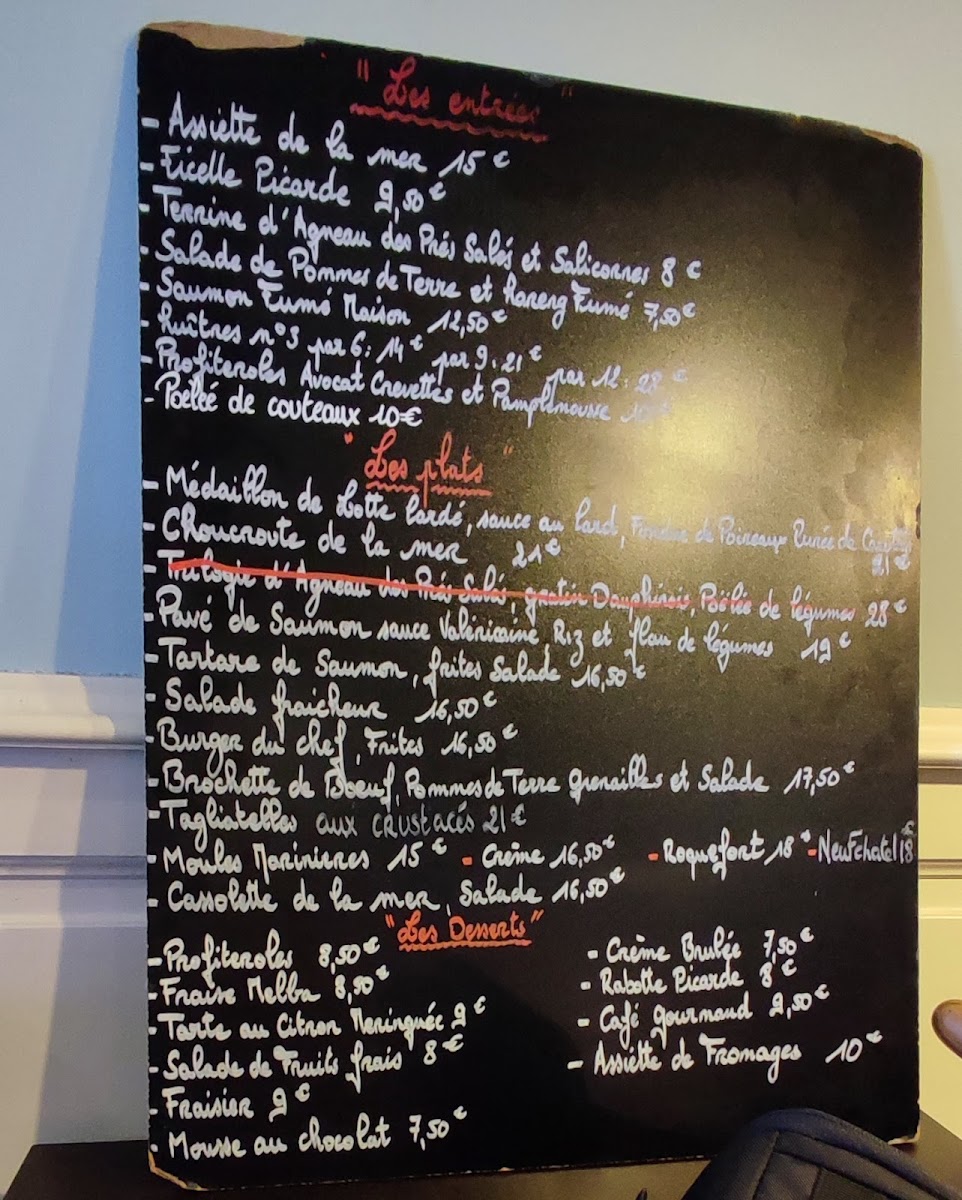 " Les entrées "
- Assiette de la mer 15 €
- Ficelle Picarde 9,50 €
- Terrine d'Agneau des Prés Salés et Salicornes 8 €
- Salade de Pommes de Terre et Hareng Fumé 7,50 €
- Saumon Fumé Maison 12,50 €
- Huîtres n°3 par 6: 14 € par 9: 21 € par 12: 28 €
- Profiteroles Avocat Crevettes et Pamplemousse
- Poêlée de couteaux 10€
" Les plats "
- Médaillon de Lotte lardé, sauce au lard, Fondue de Poireaux Purée de 21 €
- Choucroute de la mer 21 €
- Trilogie d'Agneau des Prés Salés, gratin Dauphinois, Poêlée de légumes 28 €
- Pavé de Saumon sauce Valéricaine, Riz et flan de légumes 19 €
- Tartare de Saumon, frites Salade 16,50 €
- Salade fraicheur 16,50 €
- Burger du chef, Frites 16,50 €
- Brochette de Boeuf, Pommes de Terre grenailles et Salade 17,50 €
- Tagliatelles aux crustacés 21 €
- Moules Marinières 15 € - Crème 16,50 € - Roquefort 18 € - Neufchatel 18 €
- Cassolette de la mer, Salade 16,50 €
" Les Desserts "
- Profiteroles 8,50 €
- Fraise Melba 8,50 €
- Tarte au Citron Meringuée 9 €
- Salade de Fruits frais 8 €
- Fraisier 9 €
- Mousse au chocolat 7,50 €
- Crème Brulée 7,50 €
- Rabotte Picarde 8 €
- Café gourmand 9,50 €
- Assiette de Fromages 10 €